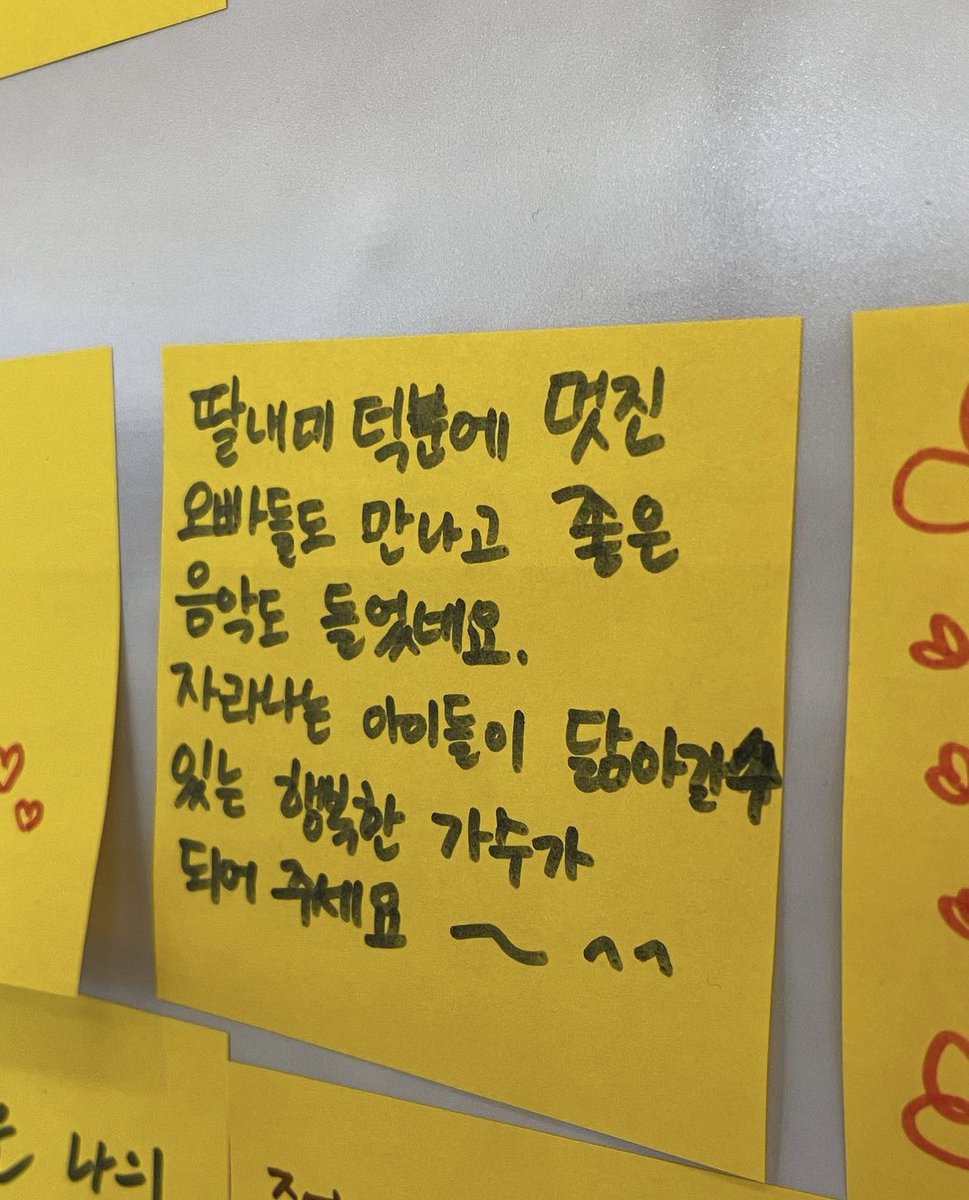 딸내미 덕분에 멋진
오빠들도 만나고 좋은
음악도 들었네요.
자라나는 아이들이 닮아갈수
있는 행복한 가수가
되어 주세요 ~ ^^
나의